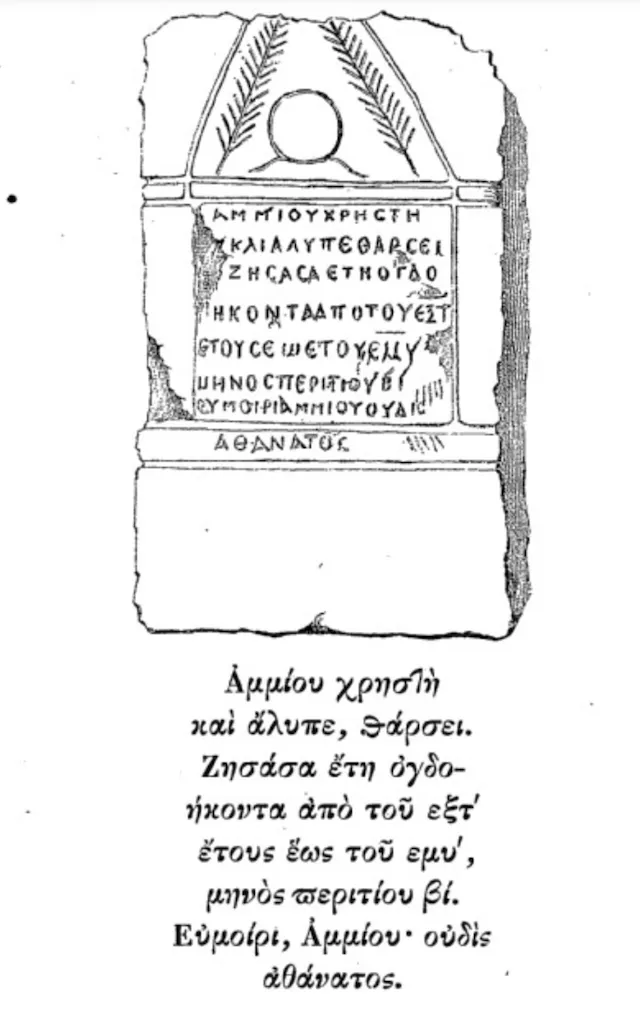 ΑΜΜΙΟΥΧΡΗСΤΗ
ΚΑΙΑΛΥΠΕΘΑΡСΕΙ
ΖΗСΑСΑΕΤΗΟΓΔΟ
ΗΚΟΝΤΑΑΠΟΤΟΥΕΞΤ
ΕΤΟΥСΕѠСΤΟΥΕΜΥ
ΜΗΝΟСΠΕΡΙΤΙΟΥΒΙ
ΕΥΜΟΙΡΙΑΜΜΙΟΥΟΥΔΙС
ΑΘΑΝΑΤΟС
Ἀμμίου χρησ7ὴ
καὶ ἄλυπε, θάρσει.
Ζησάσα ἔτη ὀγδο-
ήκοντα ἀπὸ τοῦ εξτʹ
ἔτους ἕως τοῦ εμυʹ,
μηνὸς ϖεριτίου βί.
Εὐμοίρι, Ἀμμίου· οὐδὶς
ἀθάνατος.